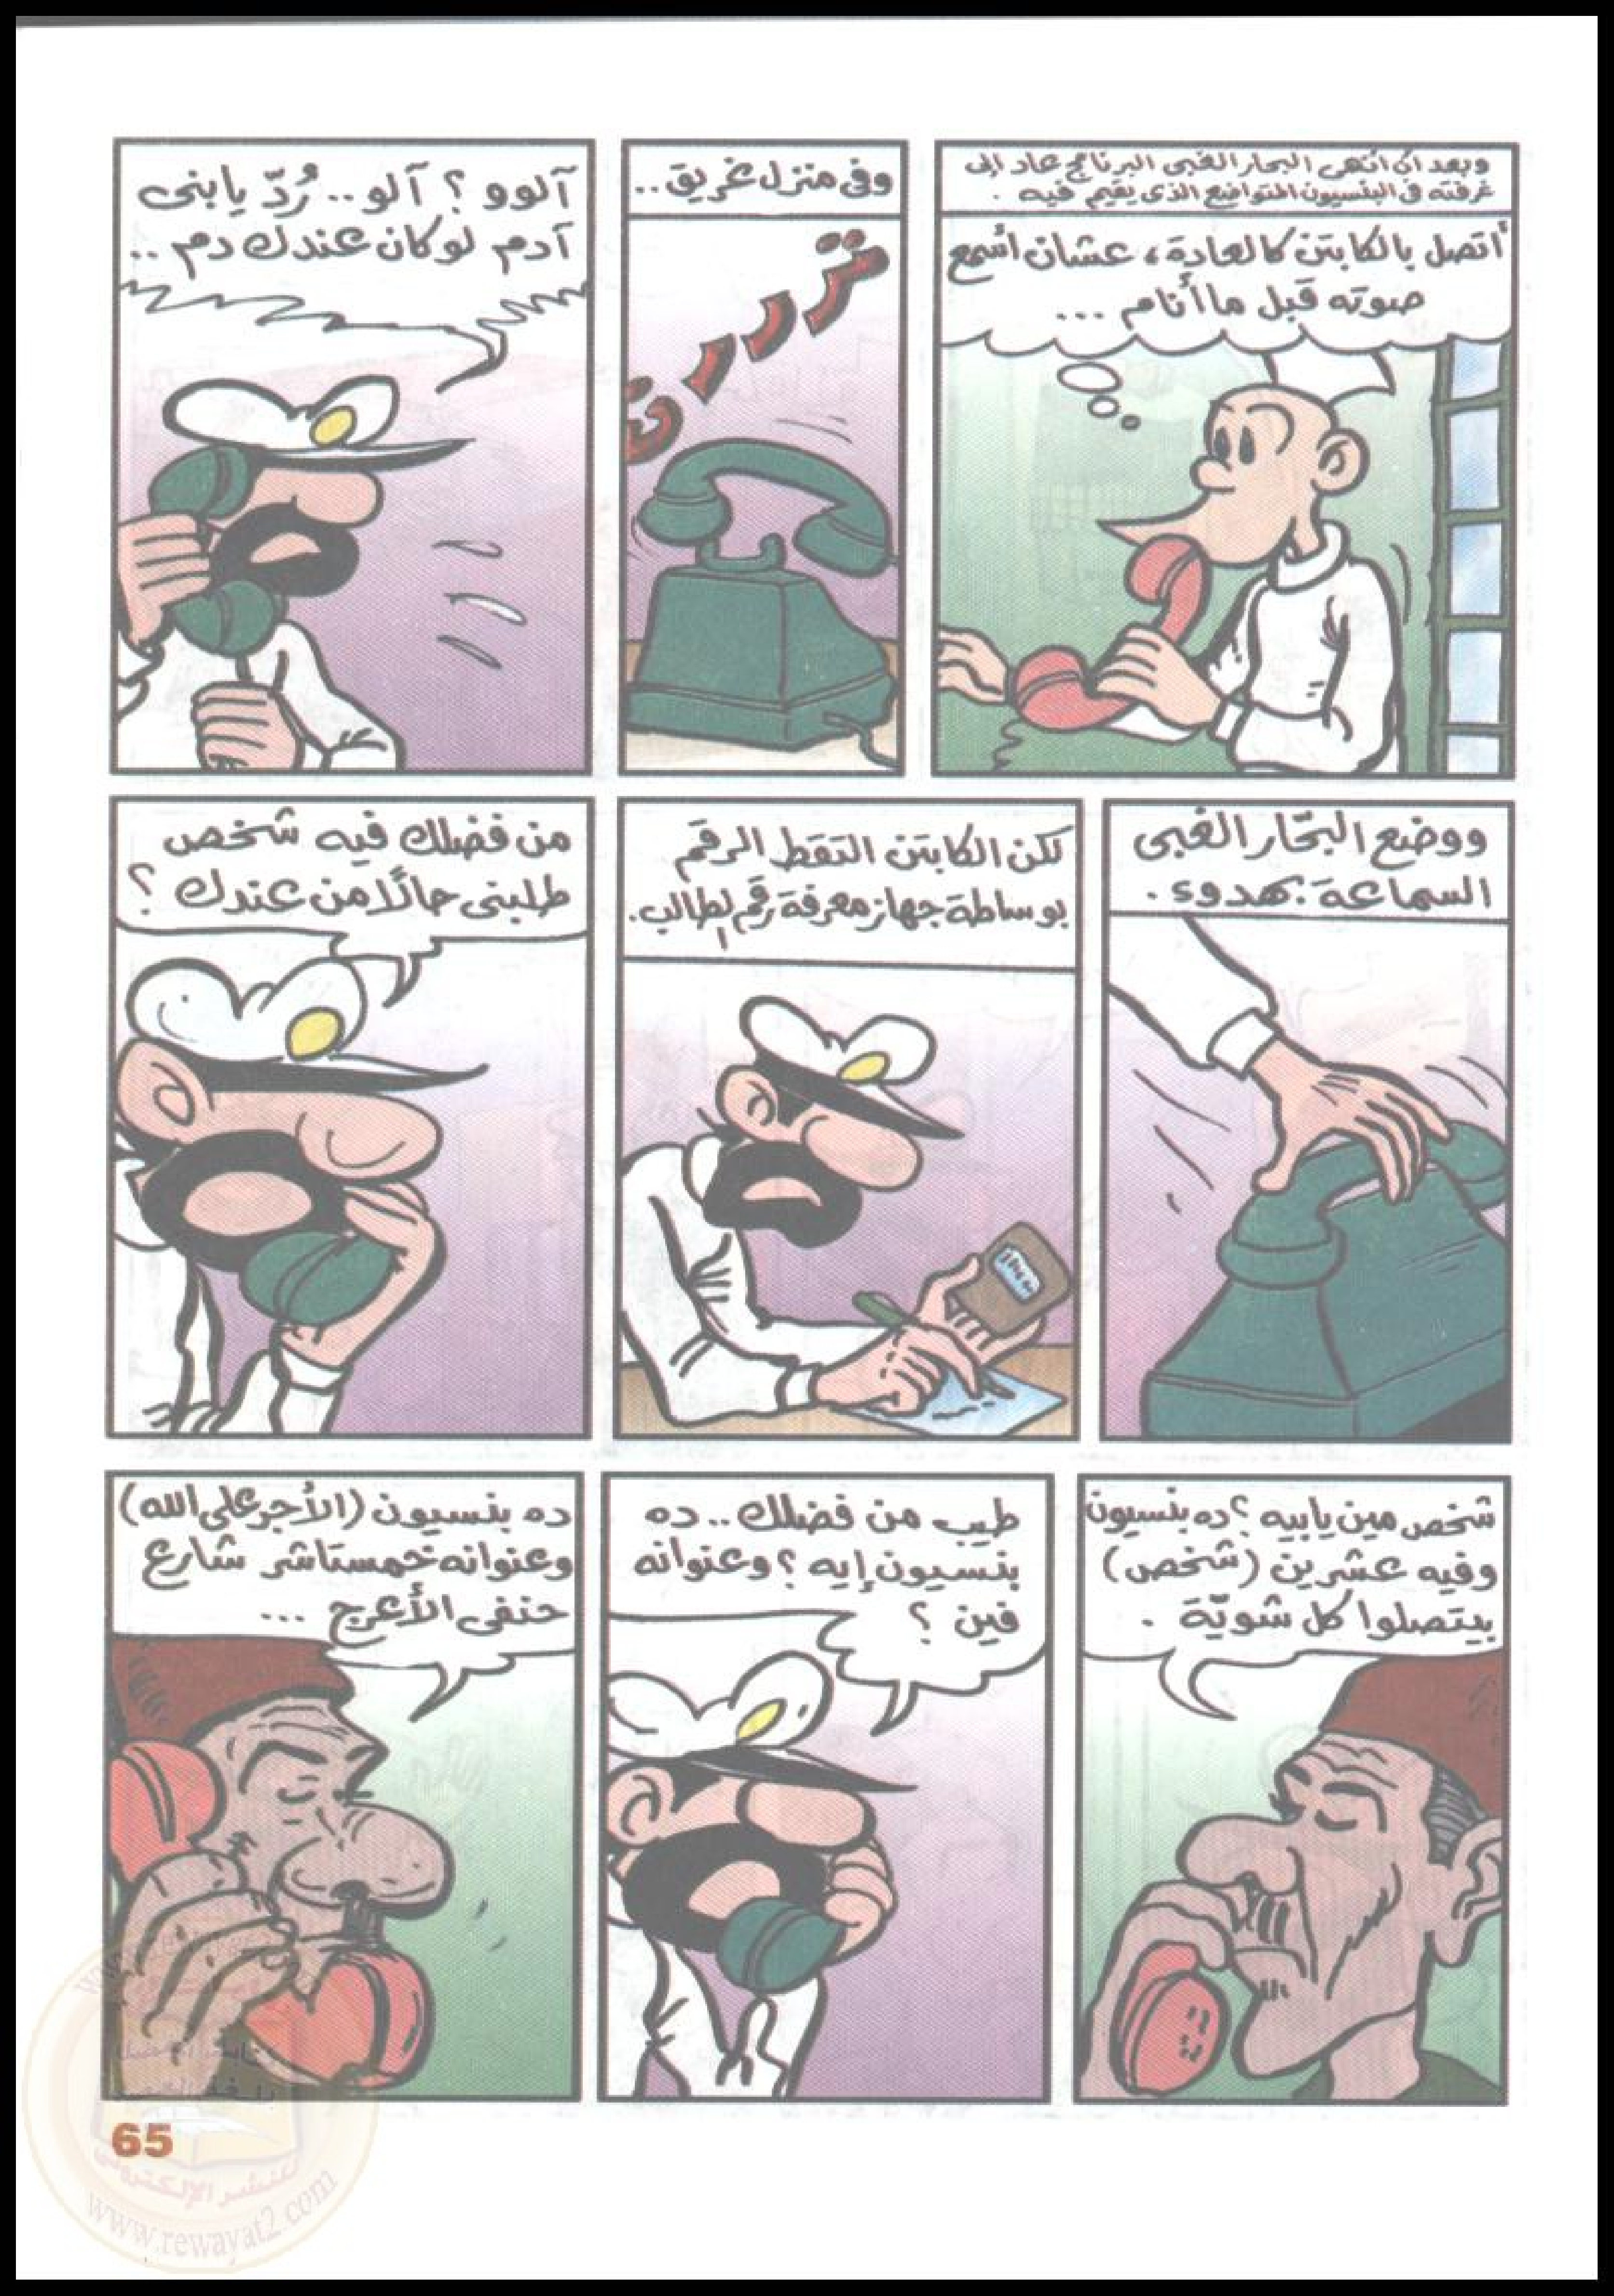 وبعد أن انتهى البحار الغبى البرنامج عاد إلى
غرفته فى البنسيون المتواضع الذى يقيم فيه .
أتصل بالكابتن كالعادة، عشان أسمع
صوته قبل ما أنام ...
وفى منزل غريق ..
ترررن
آلوو ؟ آلو .. رُدّ يا بنى
آدم لو كان عندك دم ..
ووضع البحّار الغبى
السماعة بهدوء .
لكن الكابتن التقط الرقم
بوساطة جهاز معرفة رقم الطالب .
من فضلك فيه شخص
طلبنى حالًا من عندك ؟
شخص مين يا بيه ؟ ده بنسيون
وفيه عشرين (شخص)
بيتصلوا كل شويّة .
طيب من فضلك .. ده
بنسيون إيه ؟ وعنوانه
فين ؟
ده بنسيون (الأجر على الله)
وعنوانه خمستاشر شارع
حنفى الأعرج ...
65
للنشر الإلكترونى
www.rewayat2.com